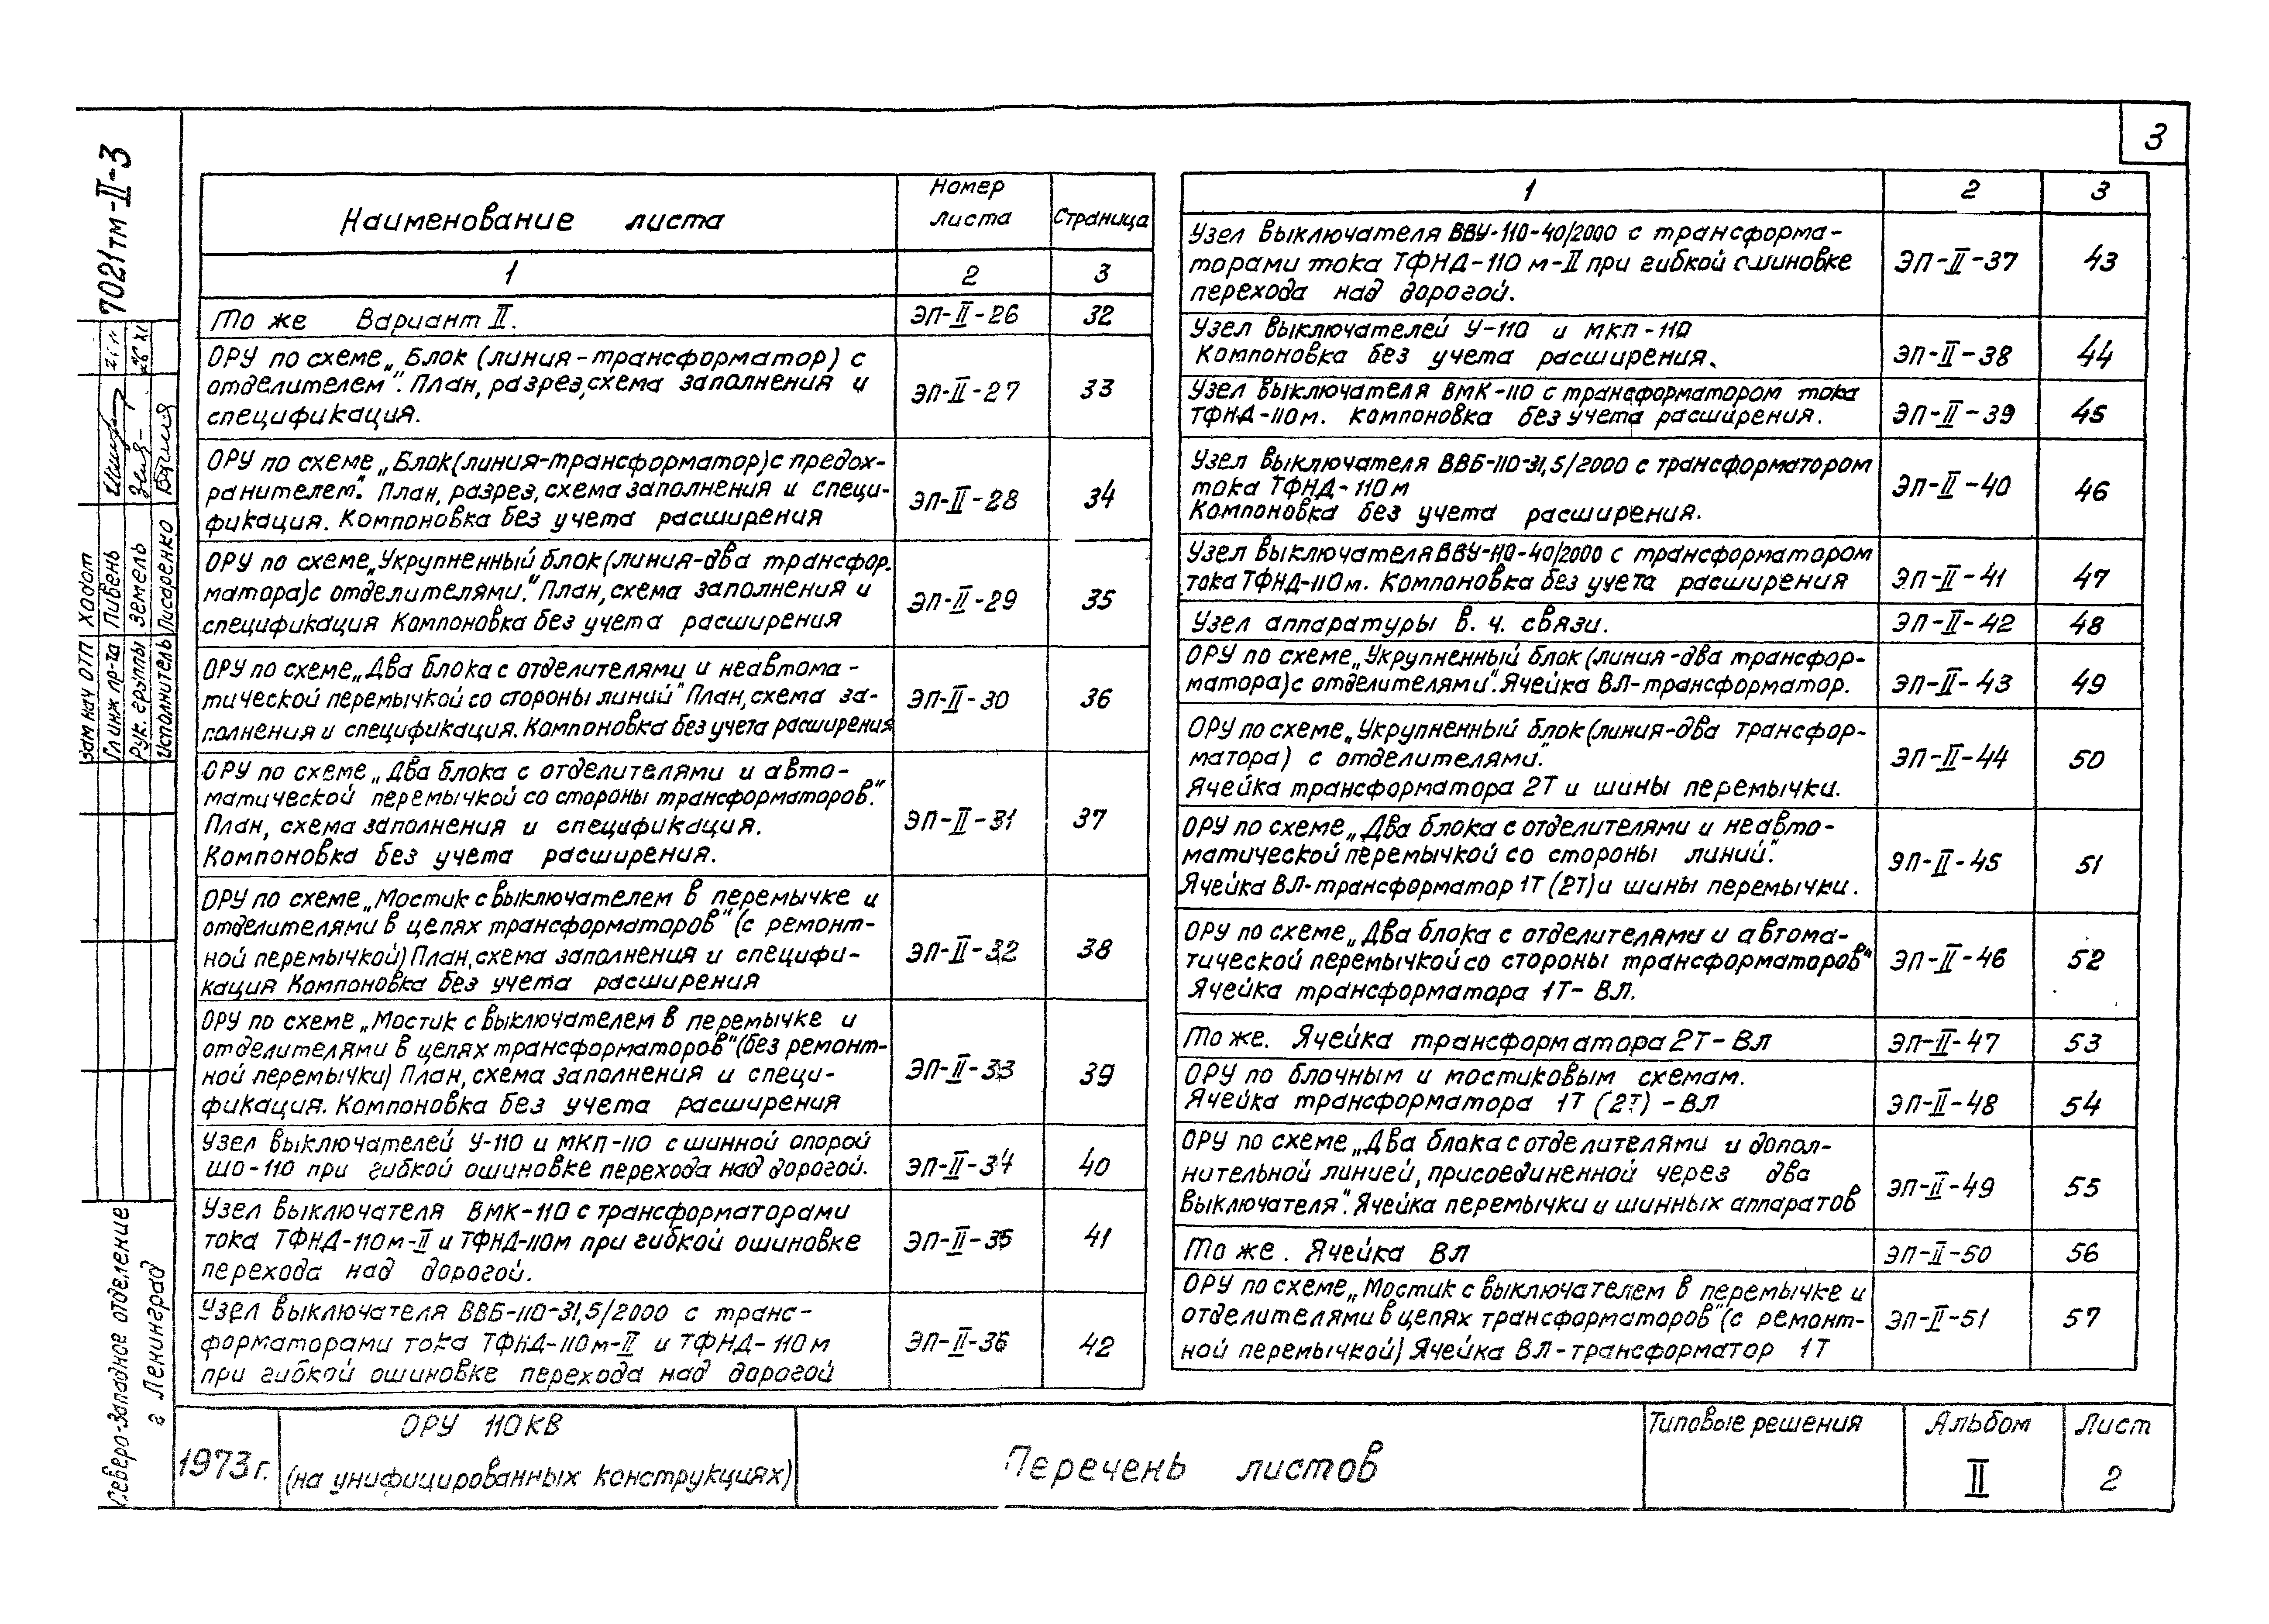 3
7021тм-II-3
Наименование листа
Номер листа
Страница
1
2
3
То же Вариант II.
ЭП-II-26
32
ОРУ по схеме „Блок (линия-трансформатор) с
отделителем". План, разрез, схема заполнения и
спецификация.
ЭП-II-27
33
ОРУ по схеме „Блок(линия-трансформатор)с предох-
ранителем". План, разрез, схема заполнения и специ-
фикация. Компоновка без учета расширения
ЭП-II-28
34
ОРУ по схеме „Укрупненный блок (линия-два трансфор.
матора)с отделителями". План, схема заполнения и
спецификация Компоновка без учета расширения
ЭП-II-29
35
ОРУ по схеме „Два блока с отделителями и неавтома-
тической перемычкой со стороны линий" План, схема за-
полнения и спецификация. Компоновка без учета расширения
ЭП-II-30
36
ОРУ по схеме „Два блока с отделителями и авто-
матической перемычкой со стороны трансформаторов".
План, схема заполнения и спецификация.
Компоновка без учета расширения.
ЭП-II-31
37
ОРУ по схеме „Мостик с выключателем в перемычке и
отделителями в цепях трансформаторов" (с ремонт-
ной перемычкой) План, схема заполнения и специфи-
кация Компоновка без учета расширения
ЭП-II-32
38
ОРУ по схеме „Мостик с выключателем в перемычке и
отделителями в цепях трансформаторов" (без ремонт-
ной перемычки) План, схема заполнения и специ-
фикация. Компоновка без учета расширения
ЭП-II-33
39
Узел выключателей У-110 и МКП-110 с шинной опорой
ШО-110 при гибкой ошиновке перехода над дорогой.
ЭП-II-34
40
Узел выключателя ВМК-110 с трансформаторами
тока ТФНД-110м-II и ТФНД-110м при гибкой ошиновке
перехода над дорогой.
ЭП-II-35
41
Узел выключателя ВВБ-110-31,5/2000 с транс-
форматорами тока ТФНД-110м-II и ТФНД-110м
при гибкой ошиновке перехода над дорогой
ЭП-II-36
42
1
2
3
Узел выключателя ВВУ-110-40/2000 с трансформа-
торами тока ТФНД-110 м-II при гибкой ошиновке
перехода над дорогой.
ЭП-II-37
43
Узел выключателей У-110 и МКП-110
Компоновка без учета расширения.
ЭП-II-38
44
Узел выключателя ВМК-110 с трансформатором тока
ТФНД-110м. Компоновка без учета расширения.
ЭП-II-39
45
Узел выключателя ВВБ-110-31,5/2000 с трансформатором
тока ТФНД-110м
Компоновка без учета расширения.
ЭП-II-40
46
Узел выключателя ВВУ-110-40/2000 с трансформатором
тока ТФНД-110м. Компоновка без учета расширения
ЭП-II-41
47
Узел аппаратуры в. ч. связи.
ЭП-II-42
48
ОРУ по схеме „Укрупненный блок (линия-два трансфор-
матора)с отделителями". Ячейка ВЛ-трансформатор.
ЭП-II-43
49
ОРУ по схеме „Укрупненный блок (линия-два трансфор-
матора) с отделителями".
Ячейка трансформатора 2Т и шины перемычки.
ЭП-II-44
50
ОРУ по схеме „Два блока с отделителями и неавто-
матической перемычкой со стороны линий".
Ячейка ВЛ-трансформатор 1Т (2Т) и шины перемычки.
ЭП-II-45
51
ОРУ по схеме „Два блока с отделителями и автома-
тической перемычкой со стороны трансформаторов"
Ячейка трансформатора 1Т-ВЛ.
ЭП-II-46
52
То же. Ячейка трансформатора 2Т-ВЛ
ЭП-II-47
53
ОРУ по блочным и мостиковым схемам.
Ячейка трансформатора 1Т (2Т) -ВЛ
ЭП-II-48
54
ОРУ по схеме „Два блока с отделителями и допол-
нительной линией, присоединенной через два
выключателя". Ячейка перемычки и шинных аппаратов
ЭП-II-49
55
То же. Ячейка ВЛ
ЭП-II-50
56
ОРУ по схеме „Мостик с выключателем в перемычке и
отделителями в цепях трансформаторов" (с ремонт-
ной перемычкой) Ячейка ВЛ-трансформатор 1Т
ЭП-II-51
57
Зам нач ОТП Ходот
Гл инж пр-та Пивень
Рук. группы Земель
Исполнитель Писаренко
Северо-Западное отделение
г Ленинград
1973г.
ОРУ 110КВ
(на унифицированных конструкциях)
Перечень листов
Типовые решения
Альбом
II
Лист
2